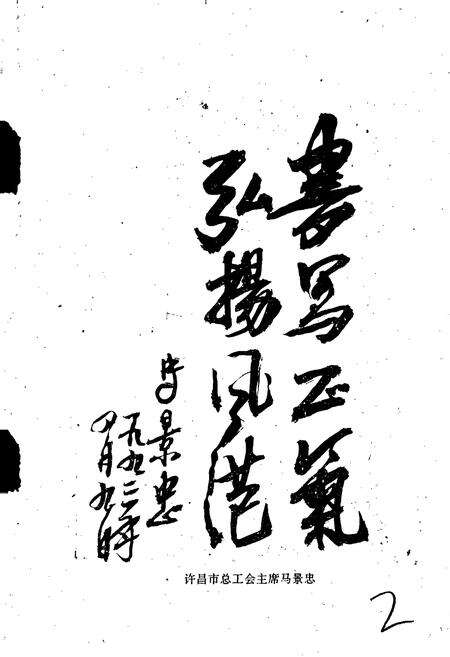 書写正氣
弘揚風范
马景忠
一九九三年
四月九日
许昌市总工会主席马景忠
2